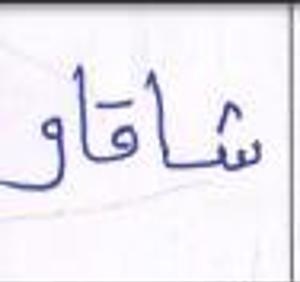 شاقاو